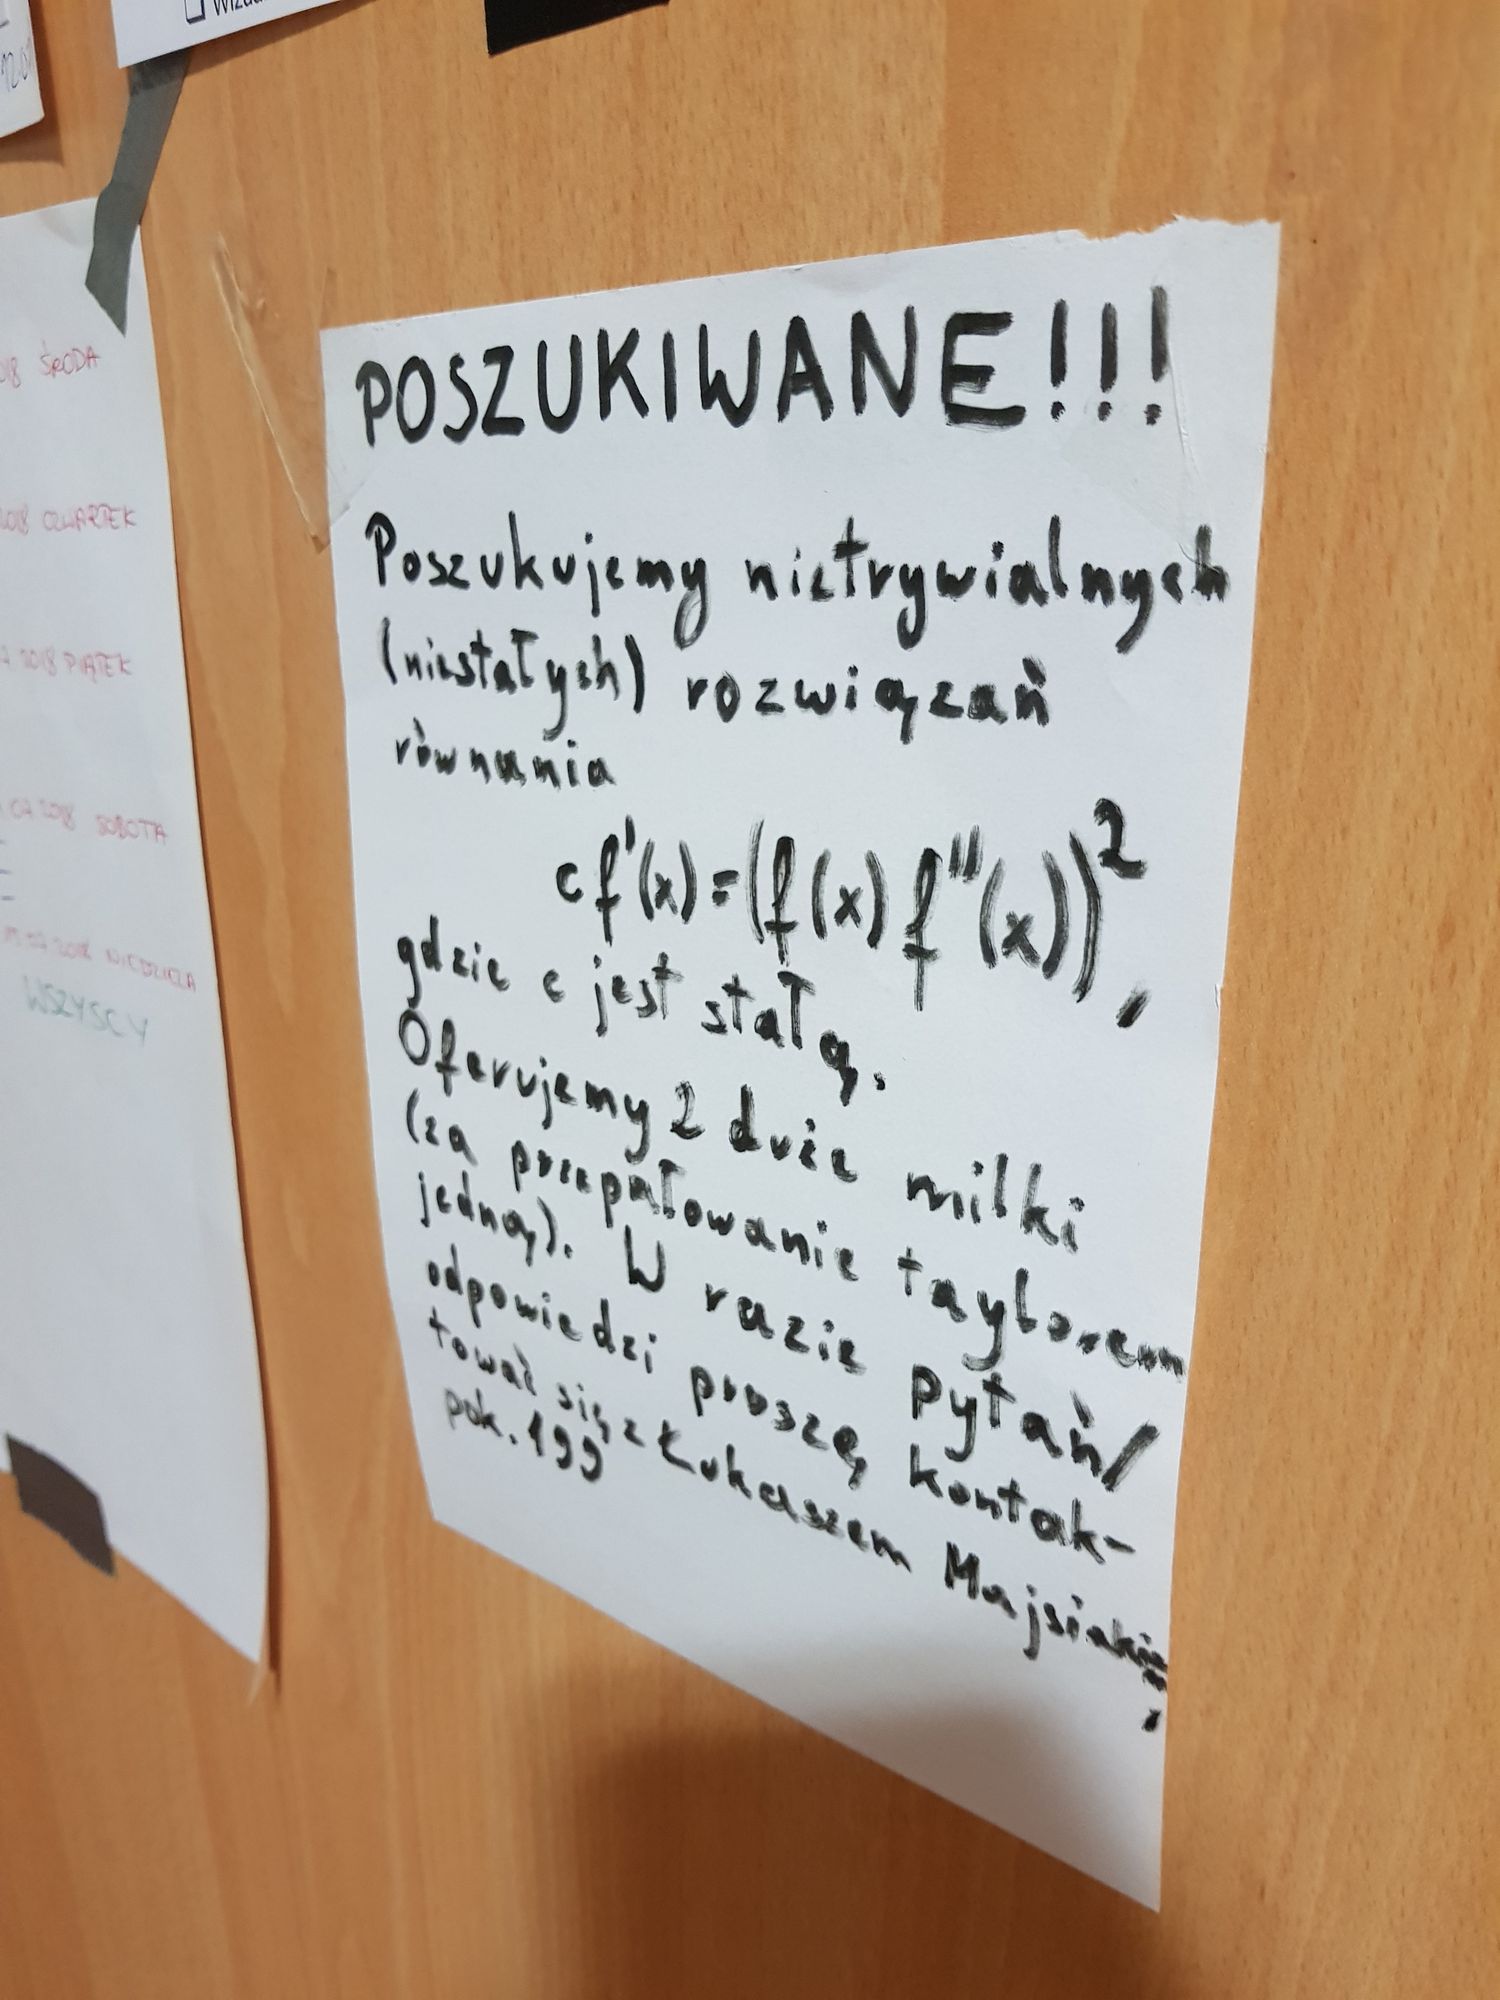 12.0
2018 ŚRODA
2018 CZWARTEK
2018 PIĄTEK
07 2018 SOBOTA
15.07.2018 NIEDZIELA
WSZYSCY
POSZUKIWANE!!!
Poszukujemy nietrywialnych
(niestałych) rozwiązań
równania
cf'(x)=(f(x)f''(x))²,
gdzie c jest stałą.
Oferujemy 2 duże milki
(za przepałowanie taylorem
jedną). W razie pytań/
odpowiedzi proszę kontak-
tować się z Łukaszem Majsiakiem,
pok. 199